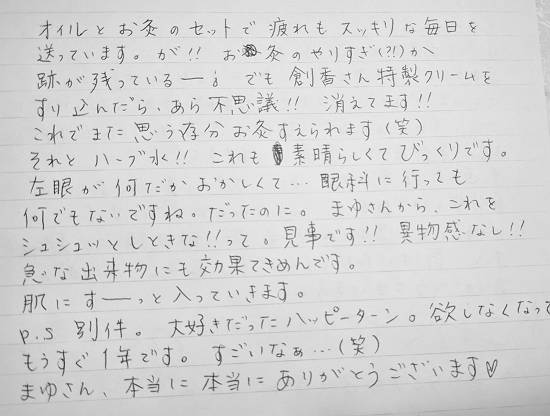 オイルとお灸のセットで疲れもスッキリな毎日を
送っています。が!! お灸のやりすぎ(?!)か
跡が残っている――; でも創香さん特製クリームを
すり込んだら、あら不思議!! 消えてます!!
これでまた思う存分お灸すえられます(笑)
それとハーブ水!! これも素晴らしくてびっくりです。
左眼が何だかおかしくて…眼科に行っても
何でもないですね。だったのに。まゆさんから、これを
シュシュッとしときな!!って。見事です!! 異物感なし!!
急な出来物にも効果てきめんです。
肌にすーーっと入っていきます。
p.s 別件。大好きだったハッピーターン。欲しなくなって
もうすぐ1年です。すごいなぁ…(笑)
まゆさん、本当に本当にありがとうございます♡